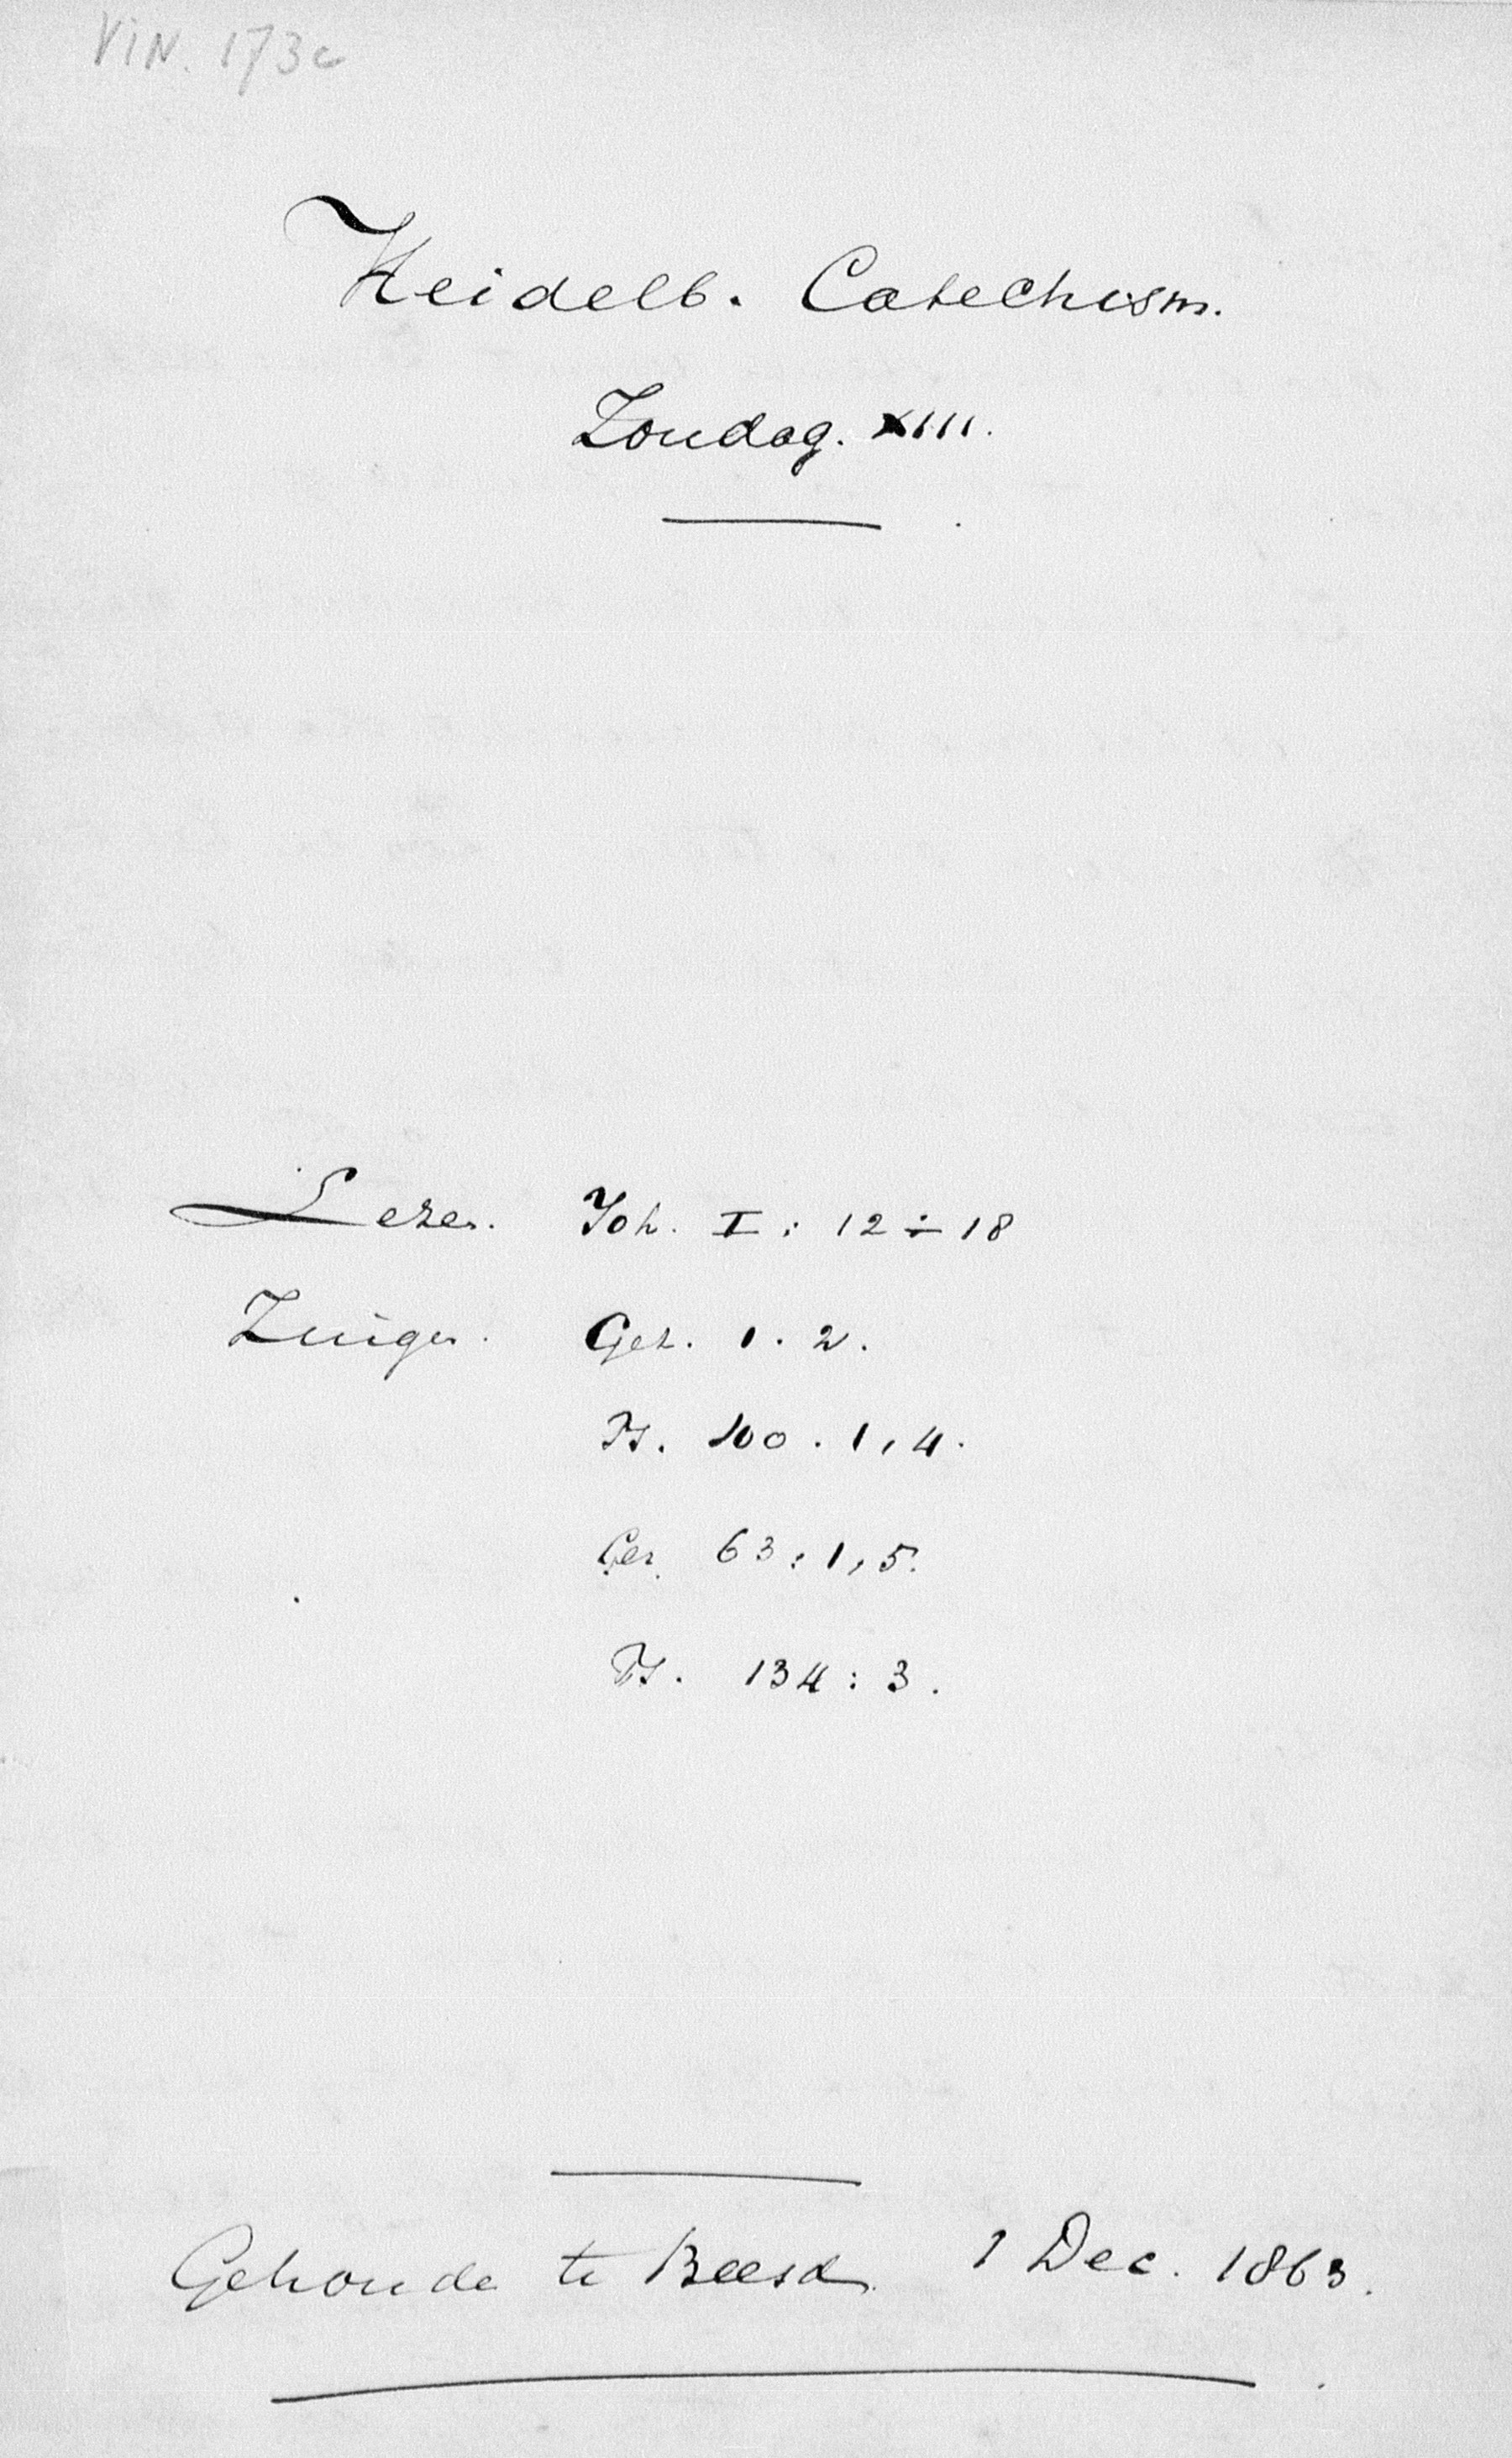 VIN. 173c
Heidelb. Catechism.
Zondag. XIII.
Lezen. Joh. I : 12 ÷ 18
Zingen. Gez. 1 . 2.
Ps. 100 . 1, 4.
Gez. 63 : 1, 5.
Ps. 134 : 3.
Gehouden te Beesd. 1 Dec. 1863.